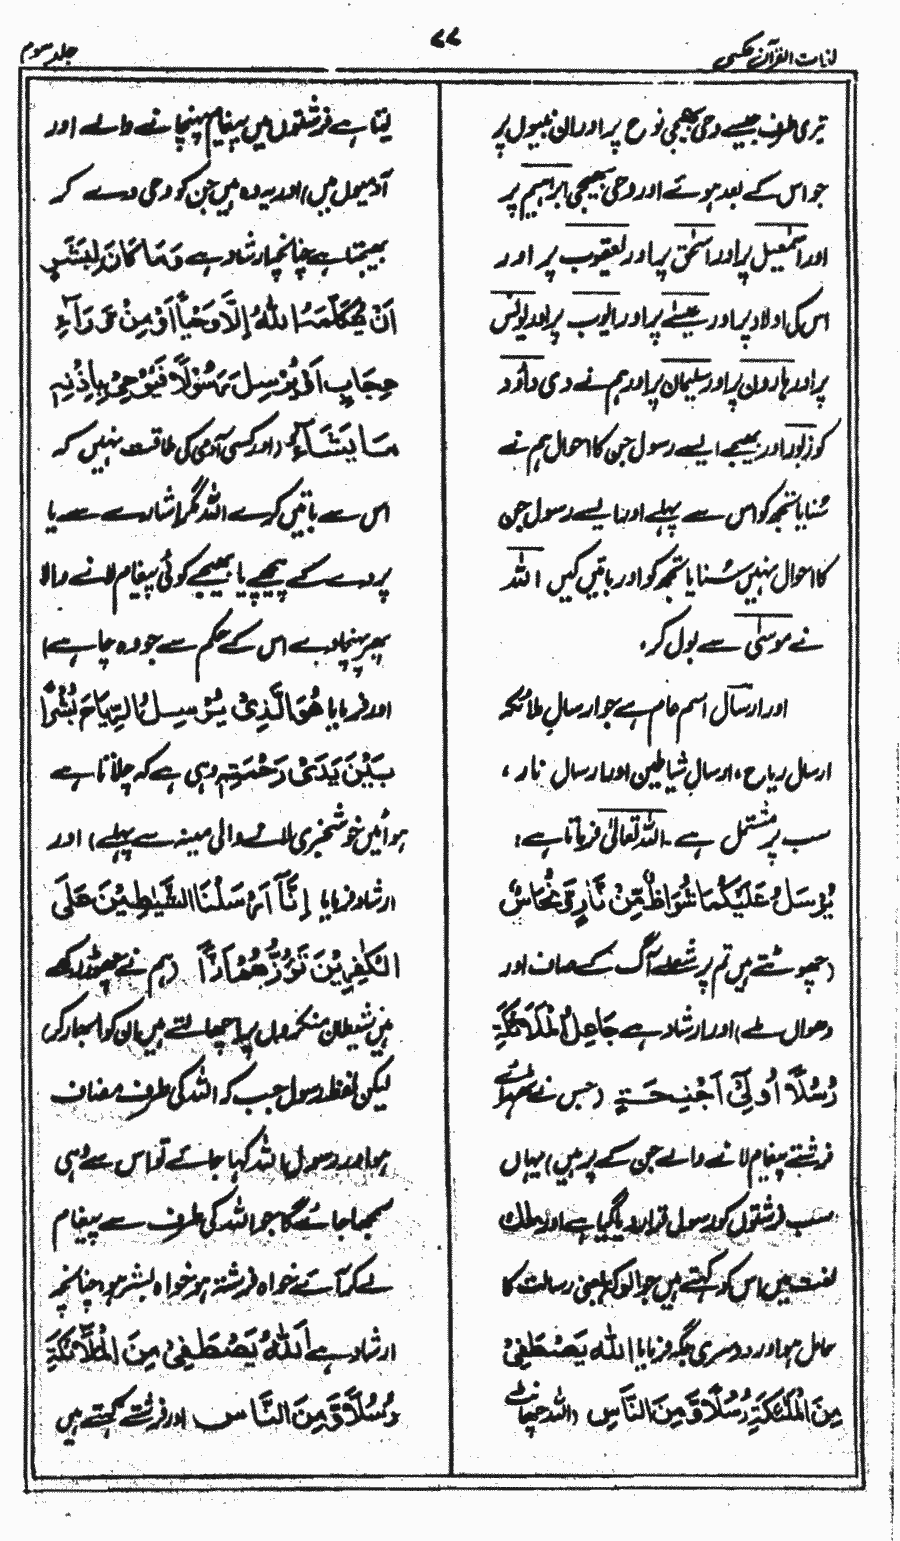 لغات القرآن حکیم
۷۷
جلد سوم
تیری طرف جیسے وحی بھیجی نوح پر اور ان نبیوں پر
جو اس کے بعد ہوئے اور وحی بھیجی ابراہیم پر
اور اسمٰعیل پر اور اسحٰق پر اور یعقوب پر اور
اس کی اولاد پر اور عیسٰے پر اور ایوب پر اور یونس
پر اور ہارون پر اور سلیمان پر اور ہم نے دی داؤد
کو زبور اور بھیجے ایسے رسول جن کا احوال ہم نے
سُنایا تجھ کو اس سے پہلے اور نہ ایسے رسول جن
کا احوال نہیں سنایا تجھ کو اور باتیں کیں اللہ
نے موسٰی سے بول کر۔
اور ارسال اسم عام ہے جو ارسالِ ملائکہ
ارسال ریاح، ارسال شیاطین اور ارسال نار،
سب پر مشتمل ہے۔ اللہ تعالٰی فرماتا ہے:
یُرْسَلُ عَلَیْکُمَا شُوَاظٌ مِّنْ نَّارٍ وَّ نُحَاسٌ
(چھوٹتے ہیں تم پر شعلے آگ کے صاف اور
دھواں ملے) اور ارشاد ہے جَاعِلُ الْمَلَائِکَةِ
رُسُلًا اُولِیْ اَجْنِحَةٍ (جس نے ٹھہرائے
فرشتے پیغام لانے والے جن کے پر ہیں) یہاں
سب فرشتوں کو رسول قرار دیا گیا ہے اور ملک
لغت میں اس کو کہتے ہیں جو الوکہ یعنی رسالت کا
حامل ہو اور دوسری جگہ فرمایا اللہُ یَصْطَفِیْ
مِنَ الْمَلٰئِکَةِ رُسُلًا وَّ مِنَ النَّاسِ (اللہ چھانٹ
لیتا ہے فرشتوں میں پیغام پہنچانے والے اور
آدمیوں میں) اور یہ وہ ہیں جن کو وحی دے کر
بھیجتا ہے چنانچہ ارشاد ہے وَمَا کَانَ لِبَشَرٍ
اَنْ یُّکَلِّمَہُ اللہُ إِلَّا وَحْیًا اَوْ مِنْ وَّرَآءِ
حِجَابٍ اَوْ یُرْسِلَ رَسُوْلًا فَیُوْحِیَ بِاِذْنِہٖ
مَا یَشَآءُ (اور کسی آدمی کی طاقت نہیں کہ
اس سے باتیں کرے اللہ مگر اشارے سے یا
پردے کے پیچھے یا بھیجے کوئی پیغام لانے والا
پھر پہنچاوے اس کے حکم سے جو وہ چاہے)
اور فرمایا ھُوَ الَّذِیْ یُرْسِلُ الرِّیَاحَ بُشْرًا
بَیْنَ یَدَیْ رَحْمَتِہٖ وہی ہے کہ چلاتا ہے
ہوائیں خوشخبری لانے والی مینہ سے پہلے) اور
ارشاد فرمایا إِنَّآ اَرْسَلْنَا الشَّیٰطِیْنَ عَلَی
الْکٰفِرِیْنَ تَؤُزُّھُمْ اَزًّا (ہم نے چھوڑ رکھے
ہیں شیطان منکروں پر اچھالتے ہیں ان کو ابھار کر)
لیکن لفظ رسول جب کہ اللہ کی طرف مضاف
ہو اور رسول اللہ کہا جائے تو اس سے وہی
سمجھا جائے گا جو اللہ کی طرف سے پیغام
لے کر آئے خواہ فرشتہ ہو خواہ بشر ہو چنانچہ
ارشاد ہے اَللہُ یَصْطَفِیْ مِنَ الْمَلٰائِکَةِ
رُسُلًا وَّ مِنَ النَّاسِ اور فرشتے کہتے ہیں